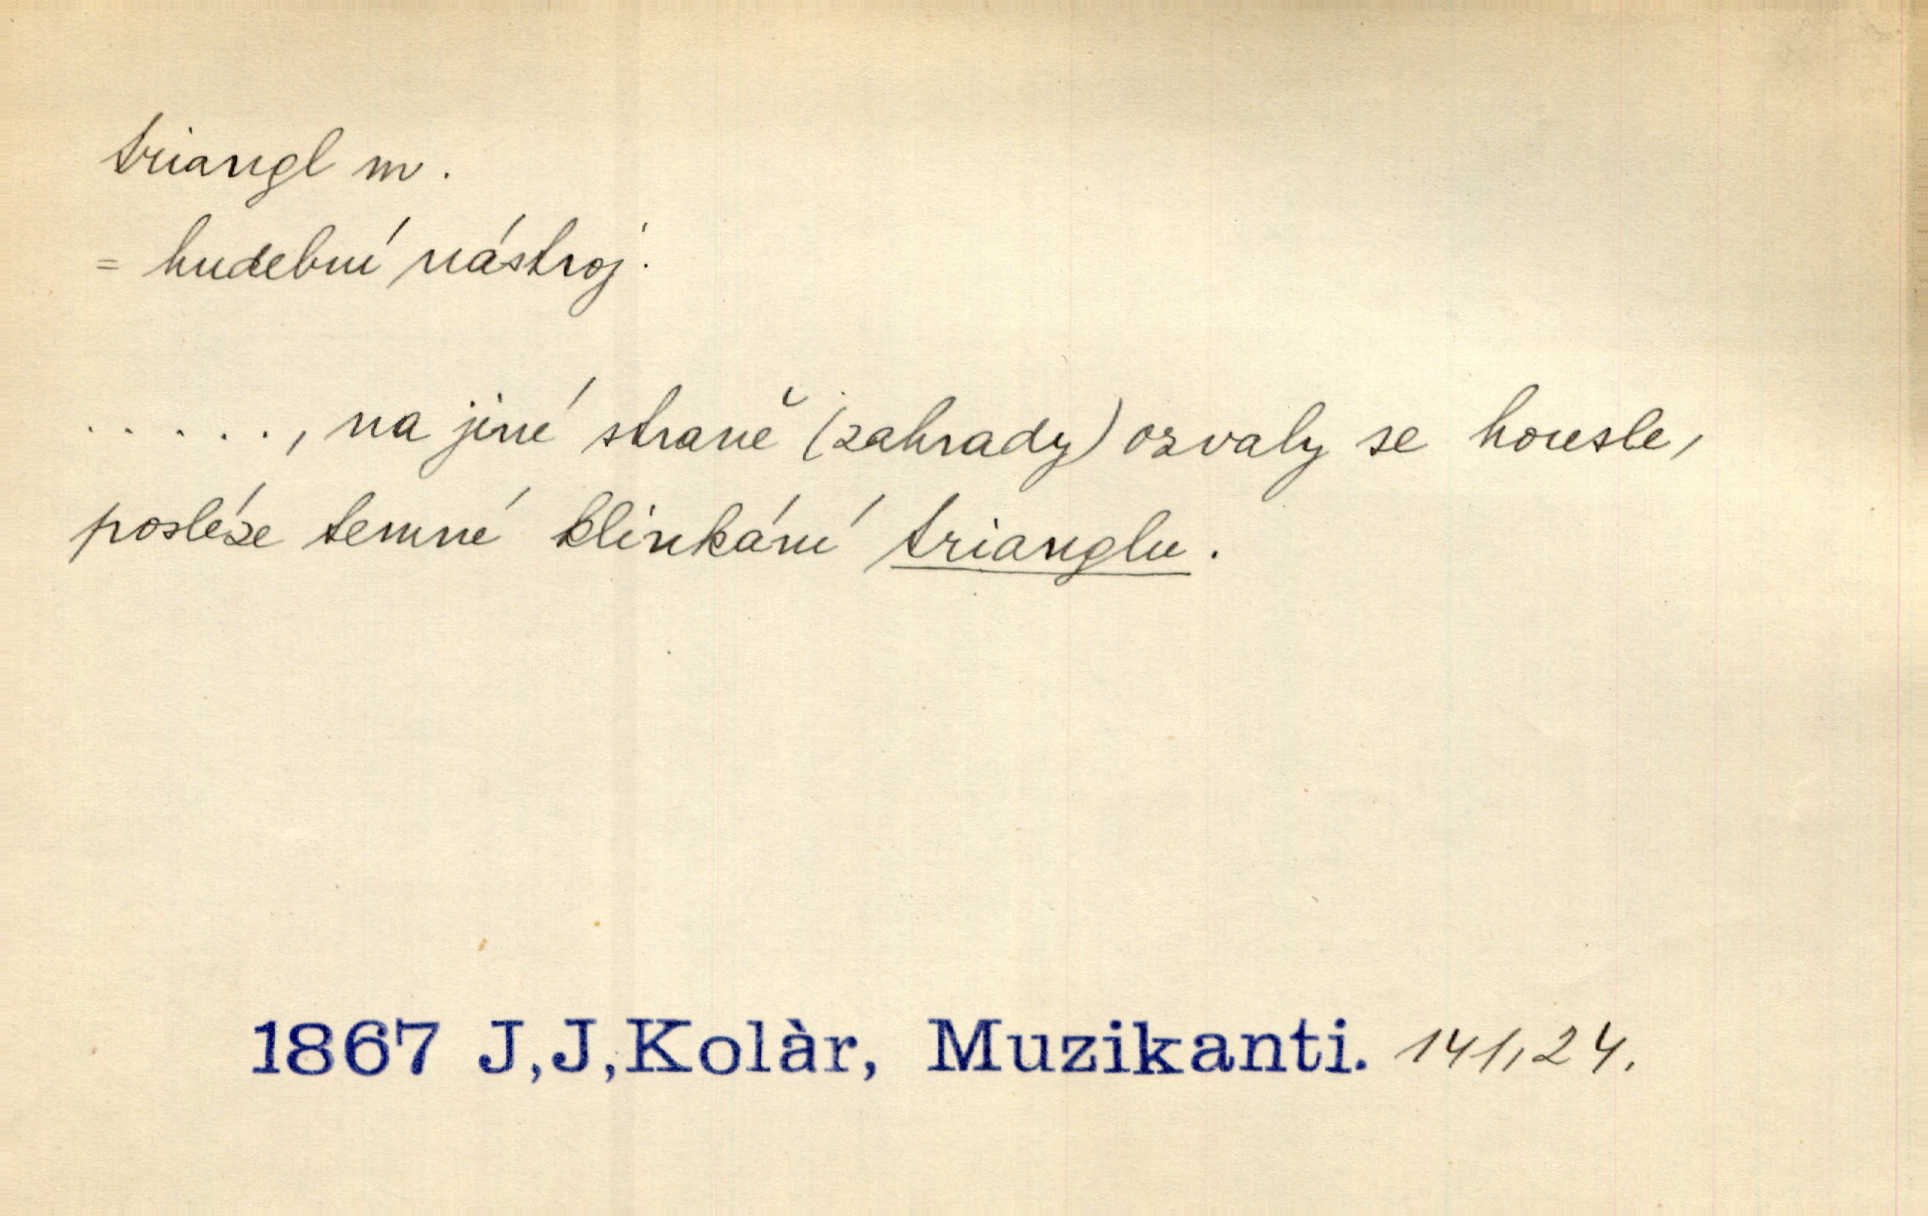 triangl m.
= hudební nástroj.
. . . . . ., na jiné straně (zahrady) ozvaly se housle,
posléze temné klinkání trianglu.
1867 J,J,Kolàr, Muzikanti. 141,24.